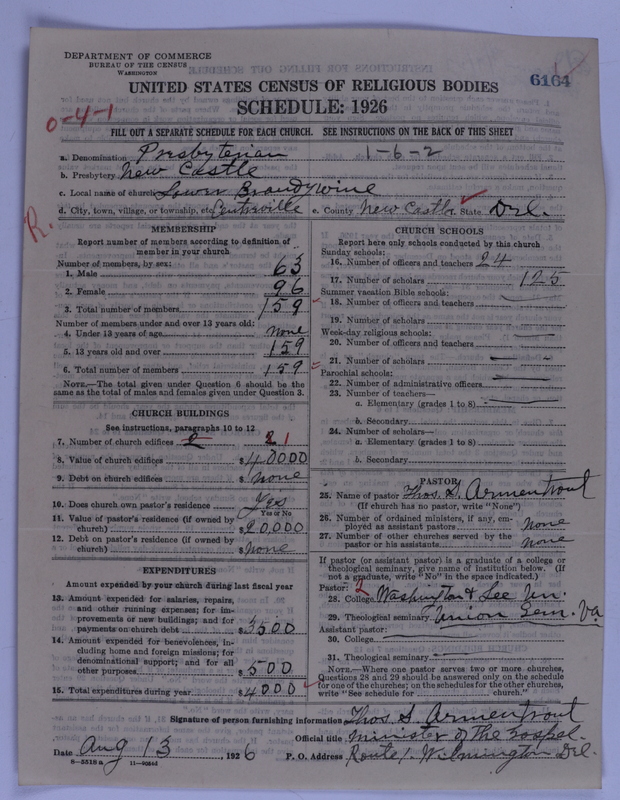 DEPARTMENT OF COMMERCE
BUREAU OF THE CENSUS
WASHINGTON
6164
UNITED STATES CENSUS OF RELIGIOUS BODIES
SCHEDULE: 1926
0-4-1
FILL OUT A SEPARATE SCHEDULE FOR EACH CHURCH. SEE INSTRUCTIONS ON THE BACK OF THIS SHEET
a. Denomination Presbyterian 1-6-2
b. Presbytery New Castle
c. Local name of church Lower Brandywine
d. City, town, village, or township, etc. Centreville e. County New Castle State Del.
R.
MEMBERSHIP
Report number of members according to definition of
member in your church
Number of members, by sex:
1. Male 63
2. Female 96
3. Total number of members 159
Number of members under and over 13 years old:
4. Under 13 years of age None
5. 13 years old and over 159
6. Total number of members 159
NOTE.—The total given under Question 6 should be the
same as the total of males and females given under Question 3.
CHURCH BUILDINGS
See instructions, paragraphs 10 to 12
7. Number of church edifices 2 1
8. Value of church edifices $40000
9. Debt on church edifices $None
10. Does church own pastor's residence Yes
Yes or No
11. Value of pastor's residence (if owned by
church) $20,000
12. Debt on pastor's residence (if owned by
church) $None
EXPENDITURES
Amount expended by your church during last fiscal year
13. Amount expended for salaries, repairs,
and other running expenses; for im-
provements or new buildings; and for
payments on church debt $3500
14. Amount expended for benevolences, in-
cluding home and foreign missions; for
denominational support; and for all
other purposes $500
15. Total expenditures during year $4000
CHURCH SCHOOLS
Report here only schools conducted by this church
Sunday schools:
16. Number of officers and teachers 24
17. Number of scholars 125
Summer vacation Bible schools:
18. Number of officers and teachers
19. Number of scholars
Week-day religious schools:
20. Number of officers and teachers
21. Number of scholars
Parochial schools:
22. Number of administrative officers
23. Number of teachers—
a. Elementary (grades 1 to 8)
b. Secondary
24. Number of scholars—
a. Elementary (grades 1 to 8)
b. Secondary
PASTOR
25. Name of pastor Thos. S. Armentrout
(If church has no pastor, write "None")
26. Number of ordained ministers, if any, em-
ployed as assistant pastors None
27. Number of other churches served by the
pastor or his assistants None
If pastor (or assistant pastor) is a graduate of a college or
theological seminary, give name of institution below. (If
not a graduate, write "No" in the space indicated.)
Pastor: 2
28. College Washington & Lee Un.
29. Theological seminary Union Sem. Va
Assistant pastor:
30. College
31. Theological seminary
NOTE.—Where one pastor serves two or more churches,
Questions 28 and 29 should be answered only on the schedule
for one of the churches; on the schedules for the other churches,
write "See schedule for church."
Signature of person furnishing information Thos. S. Armentrout
Official title Minister of the Gospel.
Date Aug 13, 1926 P. O. Address Route 1. Wilmington Del.
8-5518a